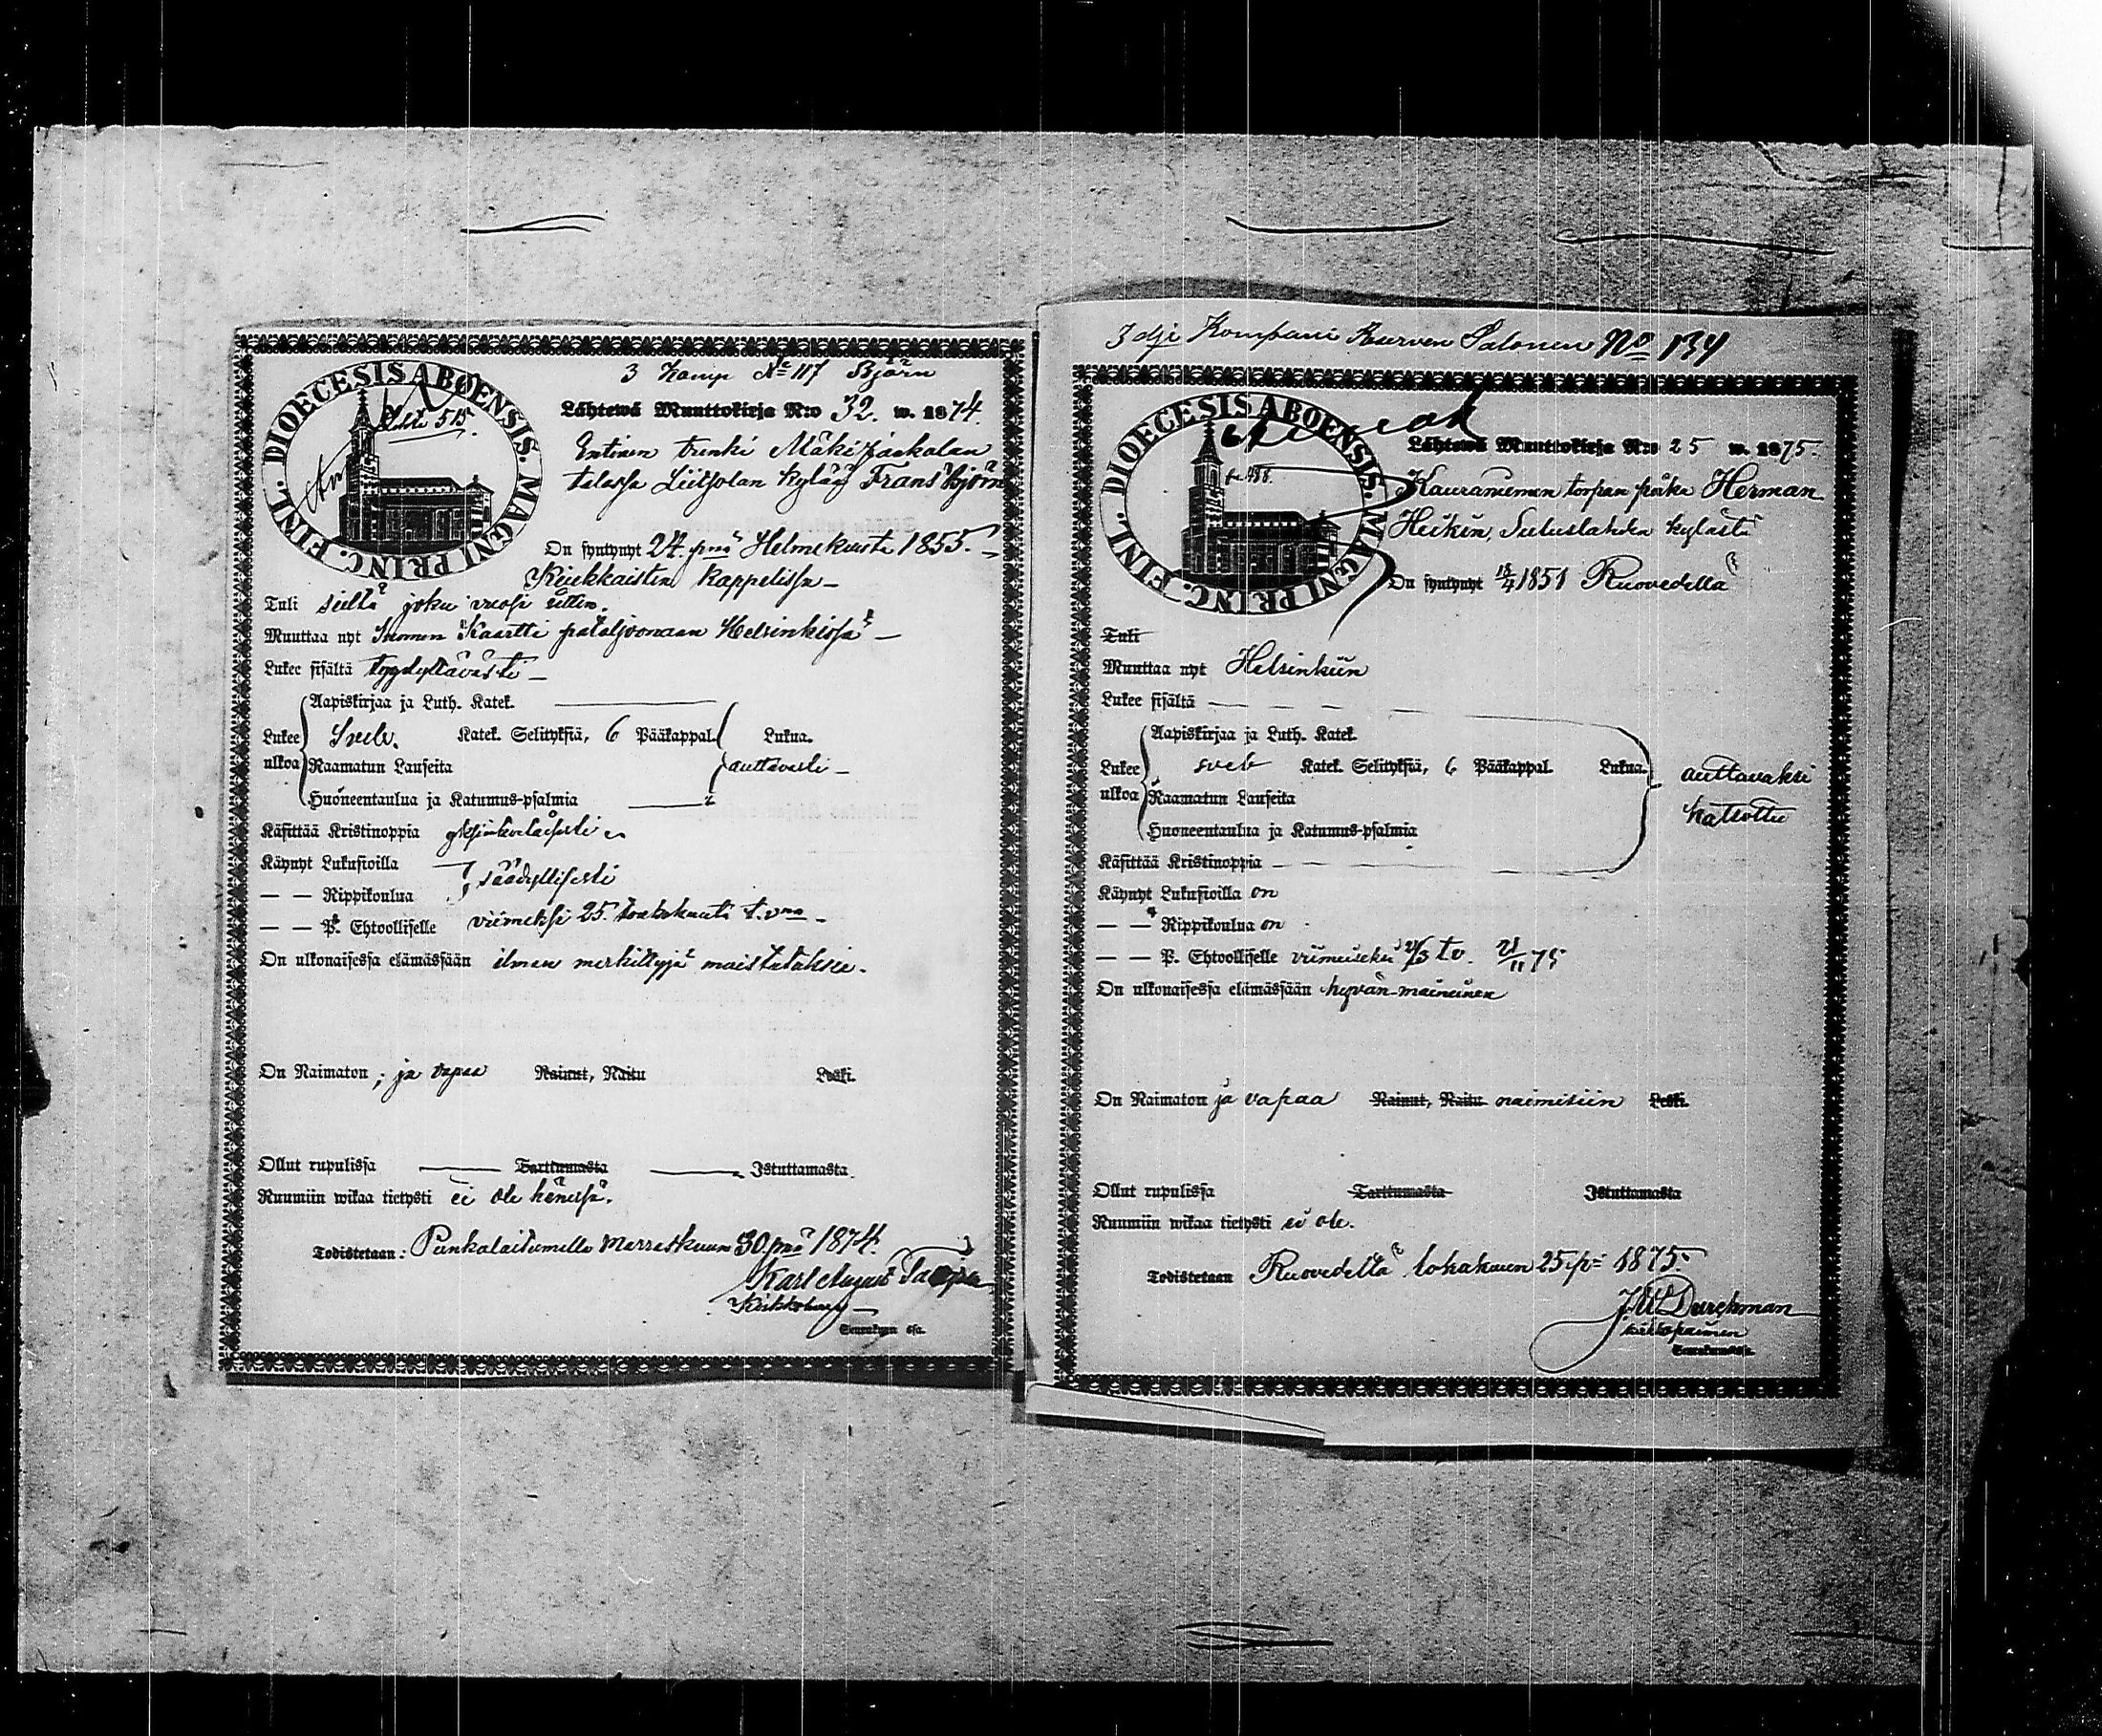 3 Komp Nº 117 Björn
DIOECESIS ABOENSIS. MAGNI PRINC. FINL.
515.
Lähtewä Muuttokirja N:o 32. w. 1874.
Entinen trenki Mäki Jaakolan
talossa Liitsolan kylää Frans Björn
On syntynyt 24. pnä Helmekuuta 1855.
Kiukkaisten kappelissa
Tuli sieltä joku vuosi sitten.
Muuttaa nyt Suomen Kaartti pataljoonaan Helsinkissä
Lukee sisältä tyydyttävästi
Aapiskirjaa ja Luth. Katek.
Lukee Sveb. Katek. Selityksiä, 6 Pääkappal. Lukua.
ulkoa Raamatun Lauseita auttavasti
Huoneentaulua ja Katumus-psalmia
Käsittää Kristinoppia yksinkertaisesti
Käynyt Lukusioilla
säädyllisesti
— — Rippikoulua
— — P. Ehtoolliselle viimeksi 25. t.v.
On ulkonaisessa elämässään ilman merkittyjä muistutuksia.
On Naimaton ; ja vapaa Nainut, Naitu Leski.
Ollut rupulissa Tarttumasta Istuttamasta
Ruumiin wikaa tietysti ei ole hänessä.
Todistetaan: Punkalaitumella Marraskuun 30. pnä 1874.
Karl August
Kirkkoherr
Seurakunnassa.
3 dje Kompani Reserven Salonen Nº 134
DIOECESIS ABOENSIS. MAGNI PRINC. FINL.
Lähtewä Muuttokirja N:o 25 w. 1875.
Kauraniemen torpan poika Herman
Heikin, kylästä
On syntynyt 18/4 1851 Ruovedellä
Tuli
Muuttaa nyt Helsinkiin
Lukee sisältä
Aapiskirjaa ja Luth. Katek.
Lukee sveb Katek. Selityksiä, 6 Pääkappal. Lukua. auttavaksi
ulkoa Raamatun Lauseita
katsottu
Huoneentaulua ja Katumus-psalmia
Käsittää Kristinoppia
Käynyt Lukusioilla on
— — Rippikoulua on
— — P. Ehtoolliselle viimeiseksi tv. 21/11 75
On ulkonaisessa elämässään hyvän-maineinen
On Naimaton ja vapaa Nainut, Naitu naimisiin Leski.
Ollut rupulissa Tarttumasta Istuttamasta
Ruumiin wikaa tietysti ei ole.
Todistetaan Ruovedellä lokakuun 25 p. 1875.
J.W. Durchman
kirkkopaimen
Seurakunnassa.